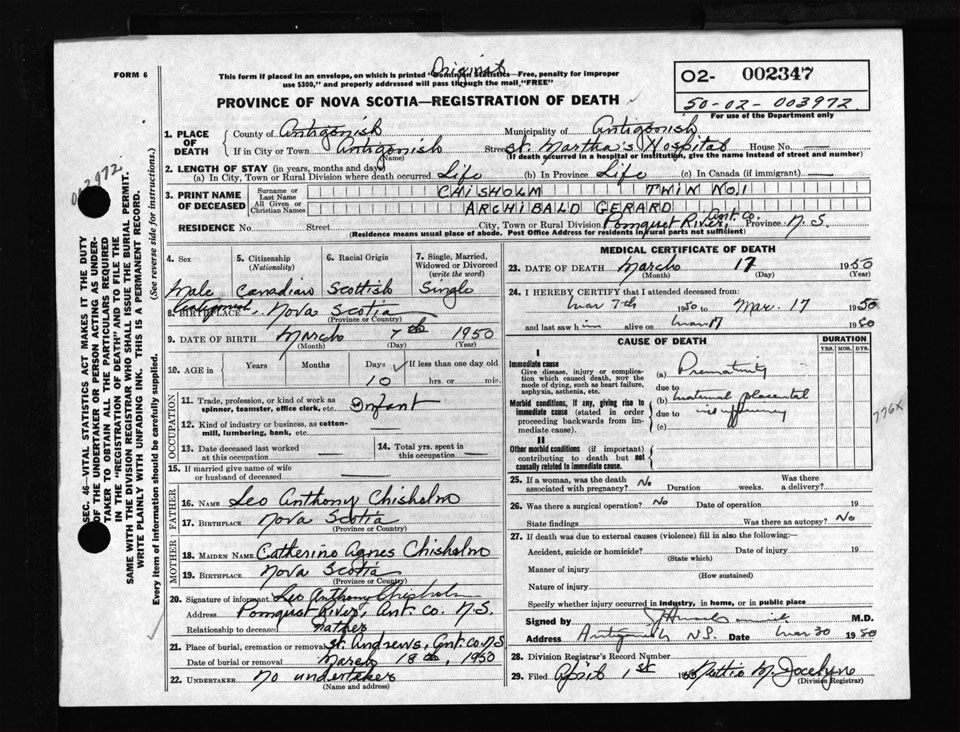 Original
FORM 6
This form if placed in an envelope, on which is printed "Dominion Statistics—Free, penalty for improper
use $300," and properly addressed will pass through the mail "FREE"
PROVINCE OF NOVA SCOTIA—REGISTRATION OF DEATH
O2- 002347
50-02-003972
For use of the Department only
003972
SEC. 46—VITAL STATISTICS ACT MAKES IT THE DUTY
OF THE UNDERTAKER OR PERSON ACTING AS UNDER-
TAKER TO OBTAIN ALL THE PARTICULARS REQUIRED
IN THE "REGISTRATION OF DEATH" AND TO FILE THE
SAME WITH THE DIVISION REGISTRAR WHO SHALL ISSUE THE BURIAL PERMIT.
WRITE PLAINLY WITH UNFADING INK. THIS IS A PERMANENT RECORD.
Every item of information should be carefully supplied. (See reverse side for instructions.)
1. PLACE OF DEATH
County of Antigonish Municipality of Antigonish
If in City or Town Antigonish Street St. Martha's Hospital House No.
(Name) (If death occurred in a hospital or institution, give the name instead of street and number)
2. LENGTH OF STAY (in years, months and days)
(a) In City, Town or Rural Division where death occurred Life (b) In Province Life (c) In Canada (if immigrant)
3. PRINT NAME OF DECEASED
Surname or Last Name CHISHOLM TWIN NO.1
All Given or Christian Names ARCHIBALD GERARD
RESIDENCE No. Street City, Town or Rural Division Pomquet River, Ant. Co. Province N.S
(Residence means usual place of abode. Post Office Address for residents in rural parts not sufficient)
4. Sex 5. Citizenship (Nationality) 6. Racial Origin 7. Single, Married, Widowed or Divorced (write the word)
Male Canadian Scottish Single
8. BIRTHPLACE Antigonish, Nova Scotia
(Province or Country)
9. DATE OF BIRTH March 7th 1950
(Month) (Day) (Year)
10. AGE in Years Months Days If less than one day old
10 hrs. or min.
OCCUPATION
11. Trade, profession, or kind of work as
spinner, teamster, office clerk, etc. Infant
12. Kind of industry or business, as cotton-
mill, lumbering, bank, etc.
13. Date deceased last worked at this occupation 14. Total yrs. spent in this occupation
15. If married give name of wife
or husband of deceased
FATHER
16. NAME Leo Anthony Chisholm
17. BIRTHPLACE Nova Scotia
(Province or Country)
MOTHER
18. MAIDEN NAME Catherine Agnes Chisholm
19. BIRTHPLACE Nova Scotia
(Province or Country)
20. Signature of informant Leo Anthony Chisholm
Address Pomquet River, Ant. Co. N.S.
Relationship to deceased Father
21. Place of burial, cremation or removal St. Andrews, Ant. Co. N.S
Date of burial or removal March 18th, 1950
22. UNDERTAKER No undertaker
(Name and address)
MEDICAL CERTIFICATE OF DEATH
23. DATE OF DEATH March 17 1950
(Month) (Day) (Year)
24. I HEREBY CERTIFY that I attended deceased from:
Mar 7th 1950 to Mar. 17 1950
and last saw him alive on Mar 17 1950
CAUSE OF DEATH
DURATION
YRS. MOS. DYS.
I
Immediate cause
Give disease, injury or complica-
tion which caused death, NOT the
mode of dying, such as heart failure,
asphyxia, asthenia, etc.
(a) Prematurity
due to
Morbid conditions, if any, giving rise to
immediate cause (stated in order
proceeding backwards from im-
mediate cause).
(b) maternal placental
due to insufficiency
(c)
776X
II
Other morbid conditions (if important)
contributing to death but not
causally related to immediate cause.
25. If a woman, was the death
associated with pregnancy? No Duration weeks. Was there a delivery?
26. Was there a surgical operation? No Date of operation 19
State findings Was there an autopsy? No
27. If death was due to external causes (violence) fill in also the following:—
Accident, suicide or homicide? Date of injury 19
(State which)
Manner of injury
(How sustained)
Nature of injury
Specify whether injury occurred in industry, in home, or in public place
Signed by M.D.
Address Antigonish N.S. Date Mar 30 1950
28. Division Registrar's Record Number
29. Filed April 1st 1950 Nettie M. Jocelyne
(Division Registrar)